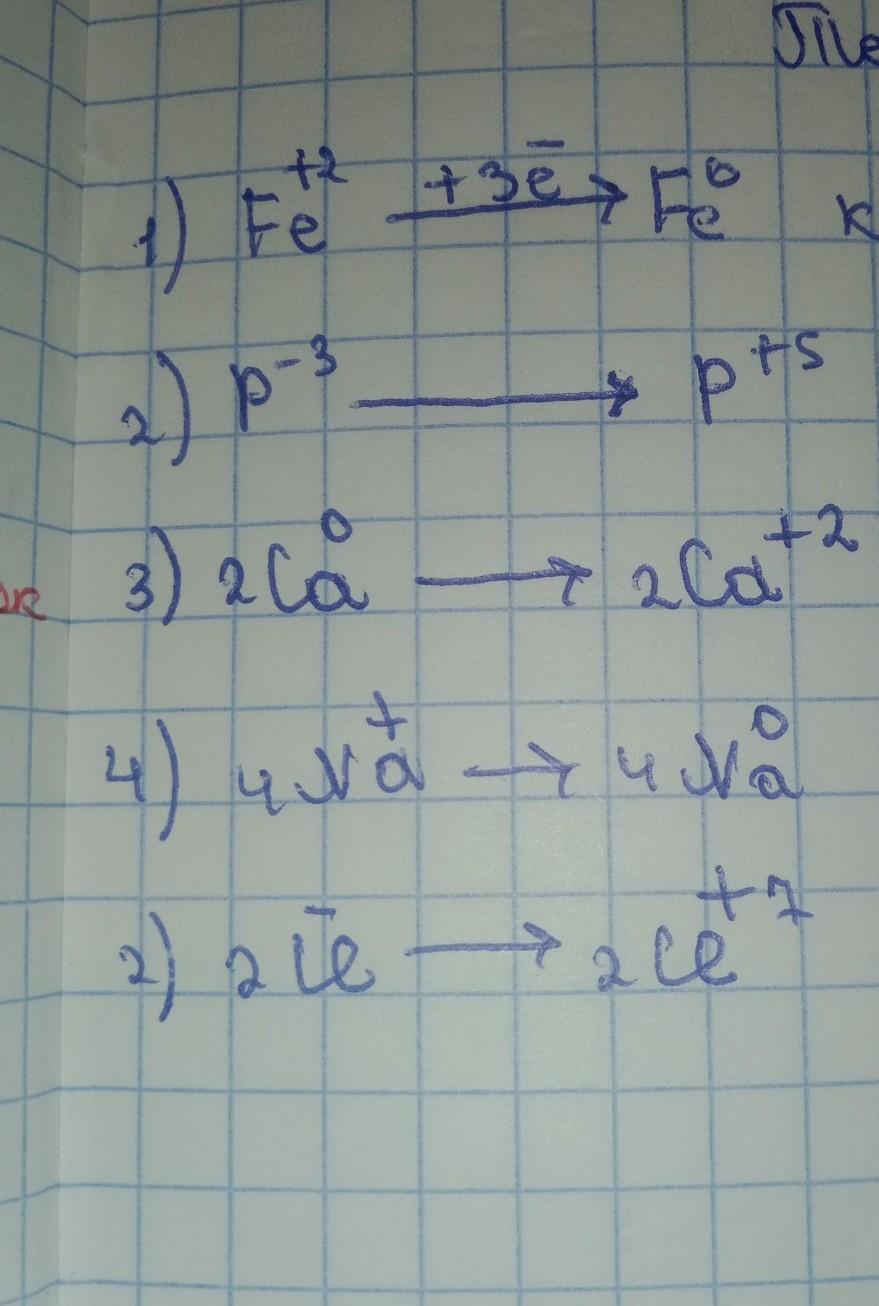 1) Fe⁺² +3e̅ → Fe⁰ к
2) P⁻³ → P⁺⁵
3) 2Ca⁰ → 2Ca⁺²
4) 4Na⁺ → 4Na⁰
2) 2Cl⁻ → 2Cl⁺⁷